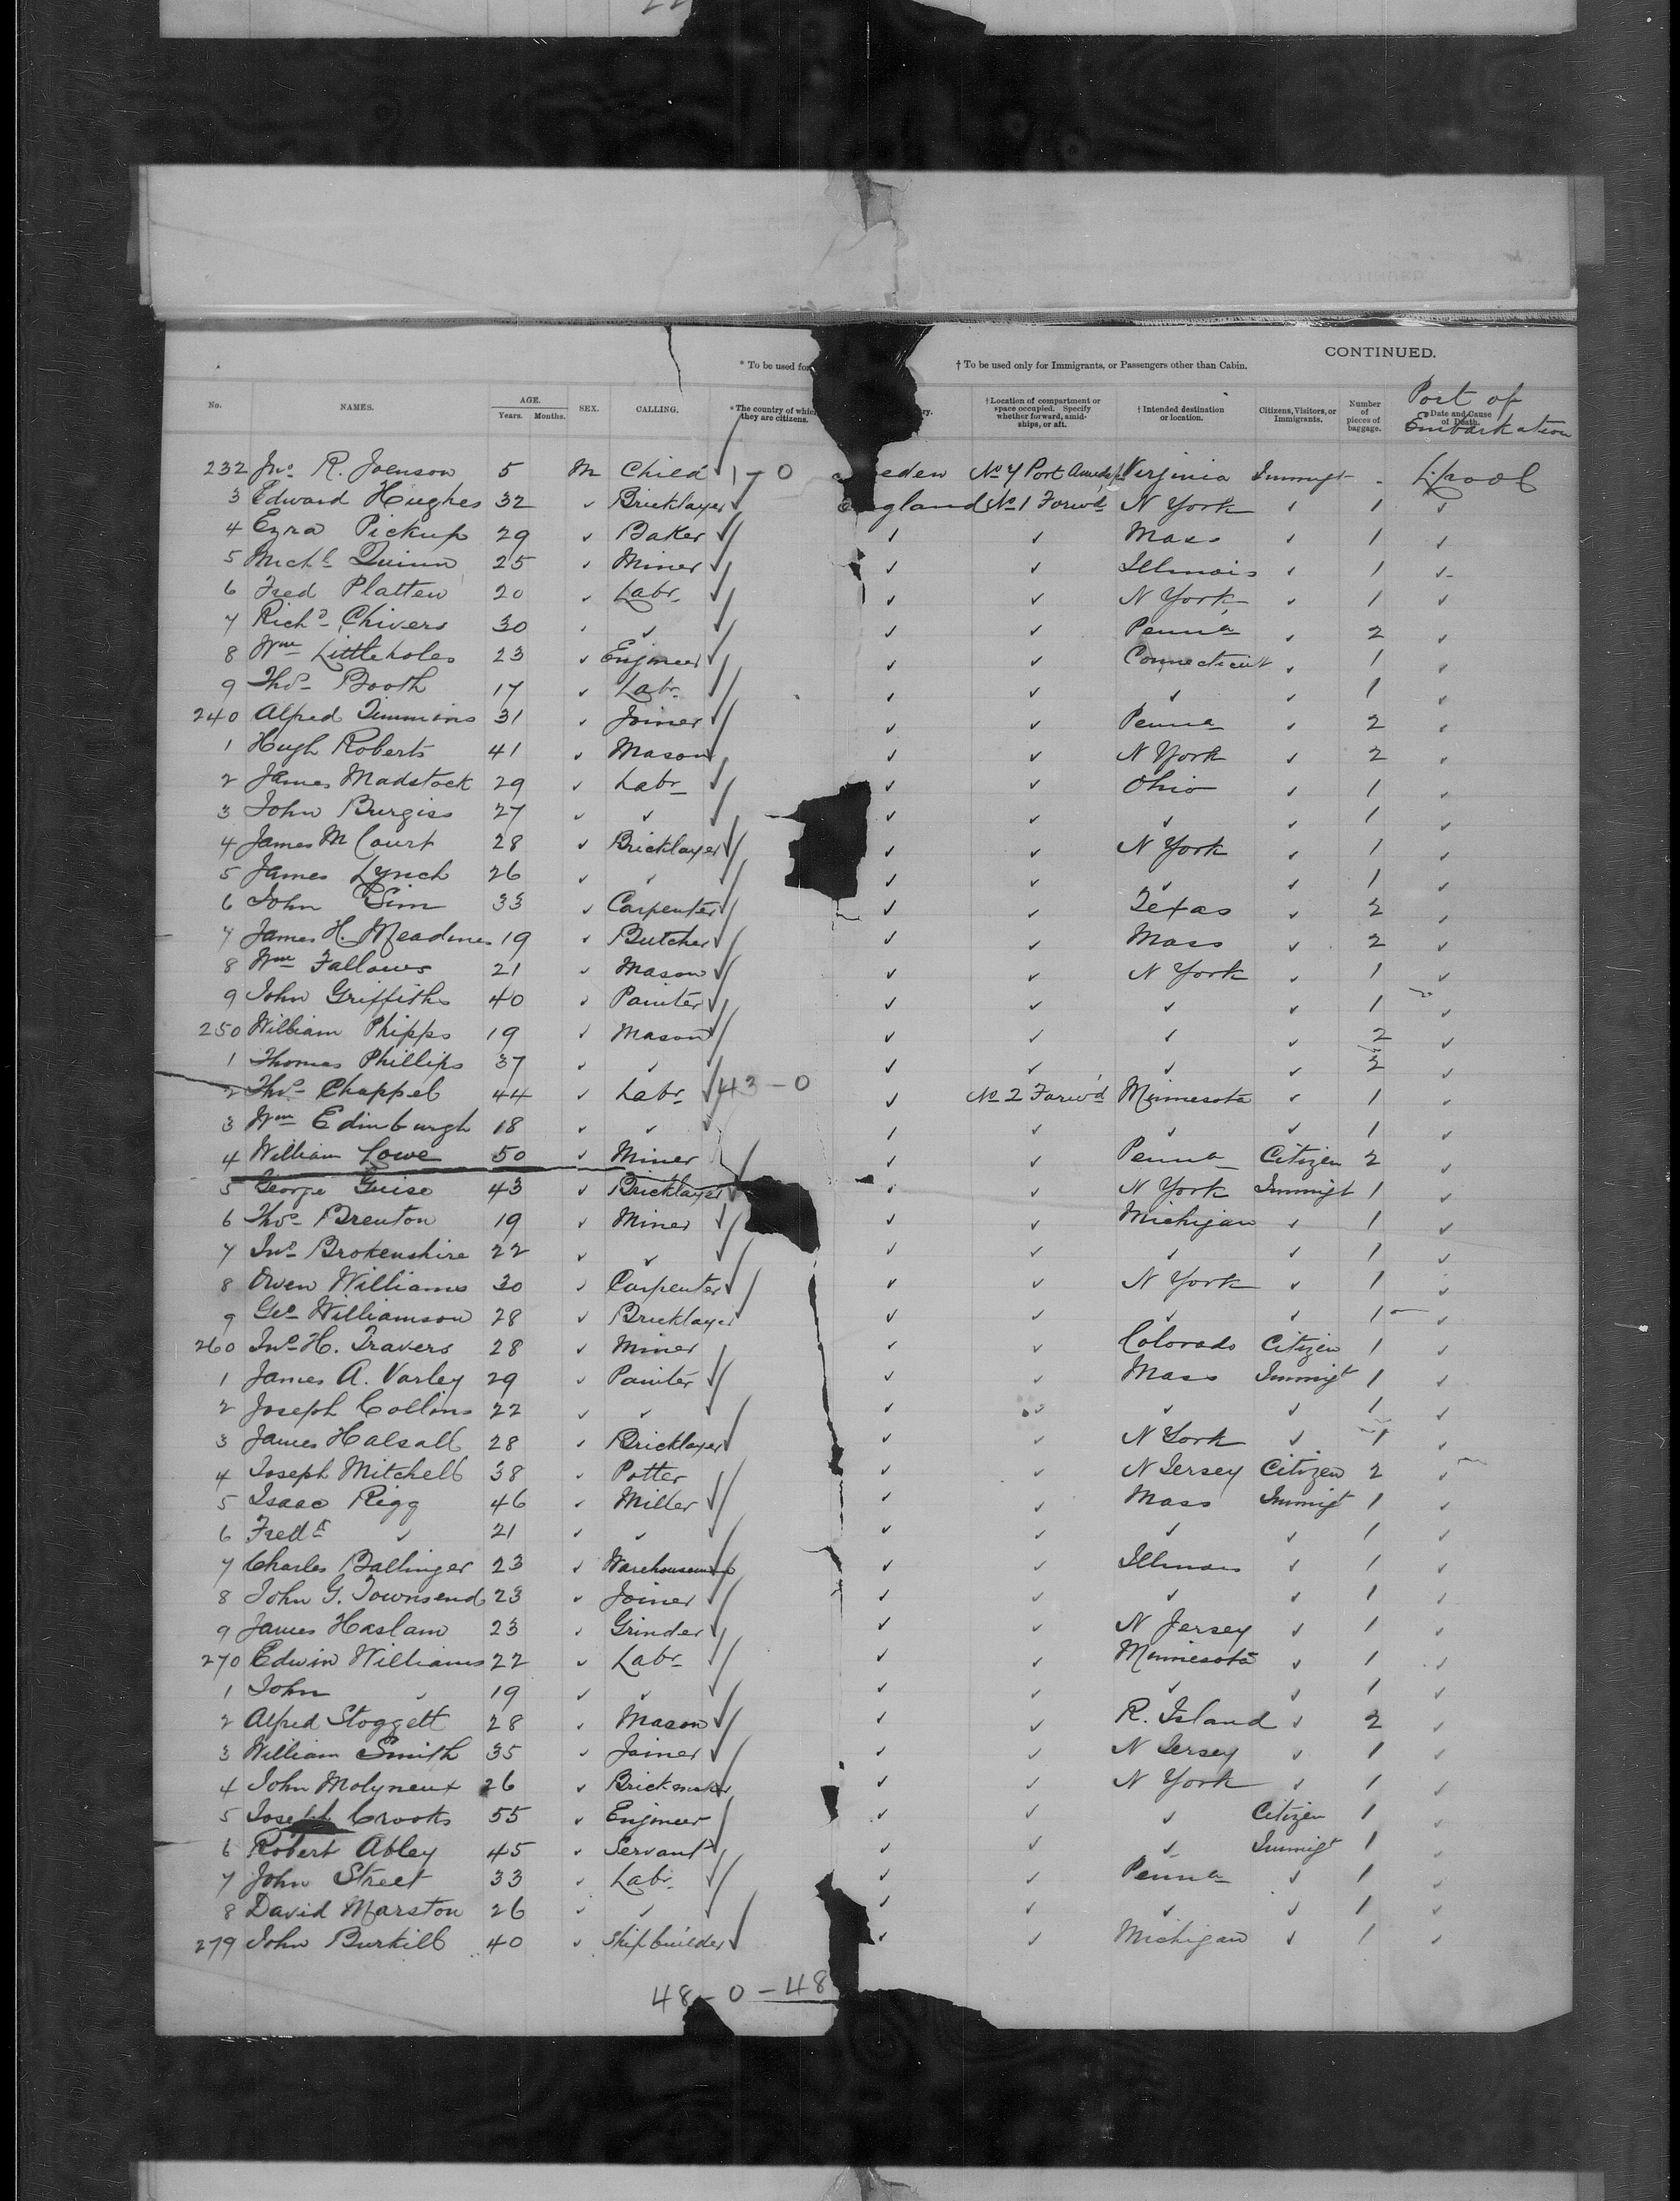 CONTINUED.
* To be used for † To be used only for Immigrants, or Passengers other than Cabin.
No. NAMES. AGE. Years. Months. SEX. CALLING. * The country of which they are citizens. † Location of compartment or space occupied. Specify whether forward, amidships, or aft. † Intended destination or location. Citizens, Visitors, or Immigrants. Number of pieces of baggage. Date and Cause of Death. Port of Embarkation
232 Jno R. Joenson 5 M Child 1 - 0 eden No 4 Port Virginia Immigt - L'pool
3 Edward Hughes 32 ✓ Bricklayer England No 1 Forwd N York ✓ 1 ✓
4 Ezra Pickup 29 ✓ Baker ✓ ✓ Mass ✓ 1 ✓
5 Michl Quinn 25 ✓ Miner ✓ ✓ Illinois ✓ 1 ✓
6 Fred Platten 20 ✓ Labr ✓ ✓ N York ✓ 1 ✓
7 Richd Chivers 30 ✓ ✓ ✓ ✓ Penna ✓ 2 ✓
8 Wm Littleholes 23 ✓ Engineer ✓ ✓ Connecticut ✓ 1 ✓
9 Thos Booth 17 ✓ Labr ✓ ✓ ✓ ✓ 1 ✓
240 Alfred Timmins 31 ✓ Joiner ✓ ✓ Penna ✓ 2 ✓
1 Hugh Roberts 41 ✓ Mason ✓ ✓ N York ✓ 2 ✓
2 James Madstock 29 ✓ Labr ✓ ✓ Ohio ✓ 1 ✓
3 John Burgiss 27 ✓ ✓ ✓ ✓ ✓ ✓ 1 ✓
4 James McCourt 28 ✓ Bricklayer ✓ ✓ N York ✓ 1 ✓
5 James Lynch 26 ✓ ✓ ✓ ✓ ✓ ✓ 1 ✓
6 John Sim 33 ✓ Carpenter ✓ ✓ Texas ✓ 2 ✓
7 James H. 19 ✓ Butcher ✓ ✓ Mass ✓ 2 ✓
8 Wm Fallows 21 ✓ Mason ✓ ✓ N York ✓ 1 ✓
9 John Griffiths 40 ✓ Painter ✓ ✓ ✓ ✓ 1 ✓
250 William Phipps 19 ✓ Mason ✓ ✓ ✓ ✓ 2 ✓
1 Thomas Phillips 37 ✓ ✓ ✓ ✓ ✓ ✓ 2 ✓
2 Thos Chappel 44 ✓ Labr 43 - 0 ✓ No 2 Forw'd Minnesota ✓ 1 ✓
3 Wm Edinburgh 18 ✓ ✓ ✓ ✓ ✓ ✓ 1 ✓
4 William Lowe 50 ✓ Miner ✓ ✓ Penna Citizen 2 ✓
5 George Guise 43 ✓ Bricklayer ✓ ✓ N York Immigt 1 ✓
6 Thos Brenton 19 ✓ Miner ✓ ✓ Michigan ✓ 1 ✓
7 Jno Brokenshire 22 ✓ ✓ ✓ ✓ ✓ ✓ 1 ✓
8 Owen Williams 30 ✓ Carpenter ✓ ✓ N York ✓ 1 ✓
9 Geo Williamson 28 ✓ Bricklayer ✓ ✓ ✓ ✓ 1 ✓
260 Jno H. Travers 28 ✓ Miner ✓ ✓ Colorado Citizen 1 ✓
1 James A. Varley 29 ✓ Painter ✓ ✓ Mass Immigt 1 ✓
2 Joseph Collins 22 ✓ ✓ ✓ ✓ ✓ ✓ 1 ✓
3 James Halsall 28 ✓ Bricklayer ✓ ✓ N York ✓ 1 ✓
4 Joseph Mitchell 38 ✓ Potter ✓ ✓ N Jersey Citizen 2 ✓
5 Isaac Rigg 46 ✓ Miller ✓ ✓ Mass Immigt 1 ✓
6 Fredk ✓ 21 ✓ ✓ ✓ ✓ ✓ ✓ 1 ✓
7 Charles Ballinger 23 ✓ Warehouseman ✓ ✓ Illinois ✓ 1 ✓
8 John G. Townsend 23 ✓ Joiner ✓ ✓ ✓ ✓ 1 ✓
9 James Haslam 23 ✓ Grinder ✓ ✓ N Jersey ✓ 1 ✓
270 Edwin Williams 22 ✓ Labr ✓ ✓ Minnesota ✓ 1 ✓
1 John ✓ 19 ✓ ✓ ✓ ✓ ✓ ✓ 1 ✓
2 Alfred Stoggett 28 ✓ Mason ✓ ✓ R. Island ✓ 2 ✓
3 William Smith 35 ✓ Joiner ✓ ✓ N Jersey ✓ 1 ✓
4 John Molyneux 26 ✓ Brickmaker ✓ ✓ N York ✓ 1 ✓
5 Joseph Crooks 55 ✓ Engineer ✓ ✓ ✓ Citizen 1 ✓
6 Robert Abley 45 ✓ Servant ✓ ✓ ✓ Immigt 1 ✓
7 John Street 33 ✓ Labr ✓ ✓ Penna ✓ 1 ✓
8 David Marston 26 ✓ ✓ ✓ ✓ ✓ ✓ 1 ✓
279 John Burkill 40 ✓ Shipbuilder ✓ ✓ Michigan ✓ 1 ✓
48 - 0 - 48